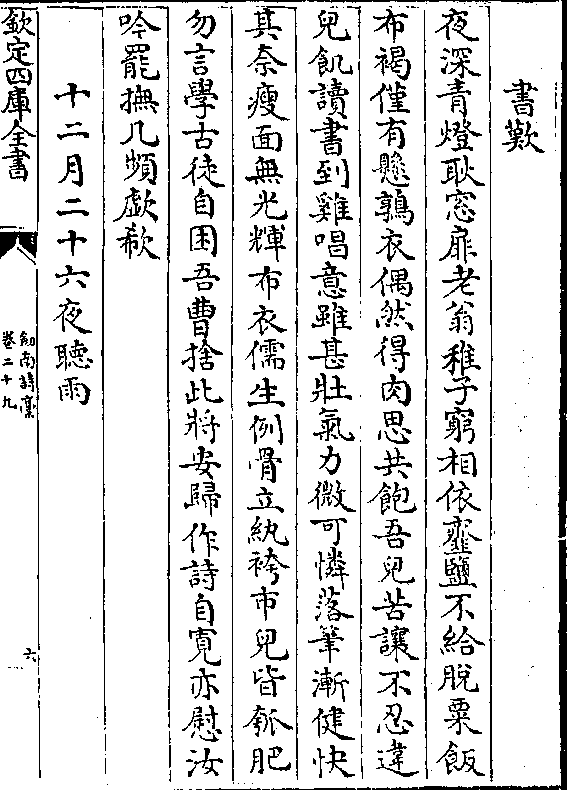 書歎
夜深青燈耿窓扉老翁稚子窮相依虀鹽不給脫粟飯
布褐僅有懸鶉衣偶然得肉思共飽吾兒苦讓不忍違
兒飢讀書到雞唱意雖甚壯氣力微可憐落筆漸健快
其奈瘦面無光輝布衣儒生例骨立紈袴市兒皆瓠肥
勿言學古徒自困吾曹捨此將安歸作詩自寬亦慰汝
吟罷撫几頻歔欷
十二月二十六夜聽雨
欽定四庫全書
劒南詩稾
卷二十九
六